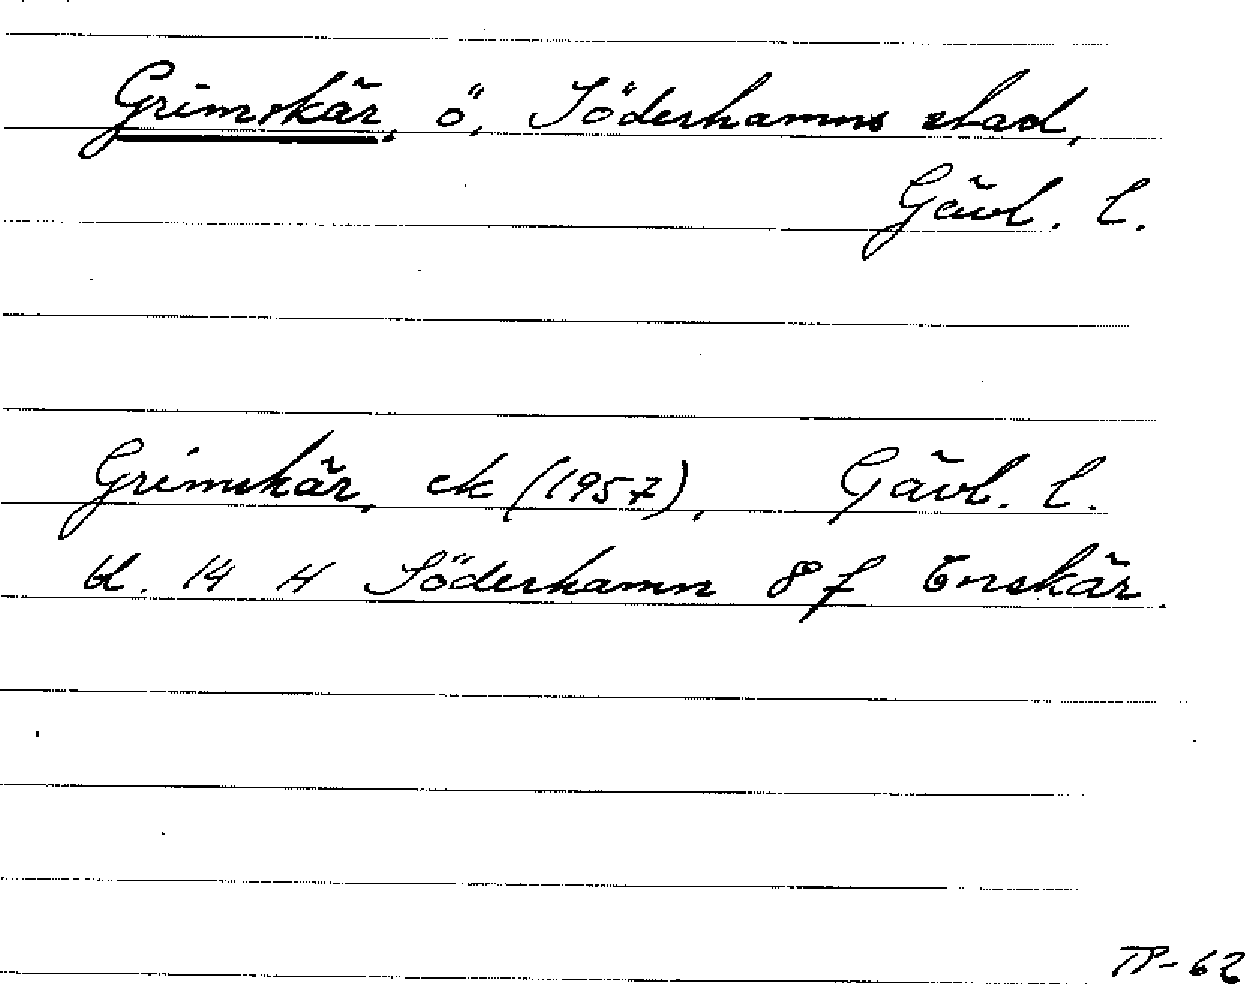 Grimskär, ö, Söderhamns stad,
Gävl. l.
Grimskär, ek (1957), Gävl. l.
bl. 14 H Söderhamn 8 f Enskär.
TP-62